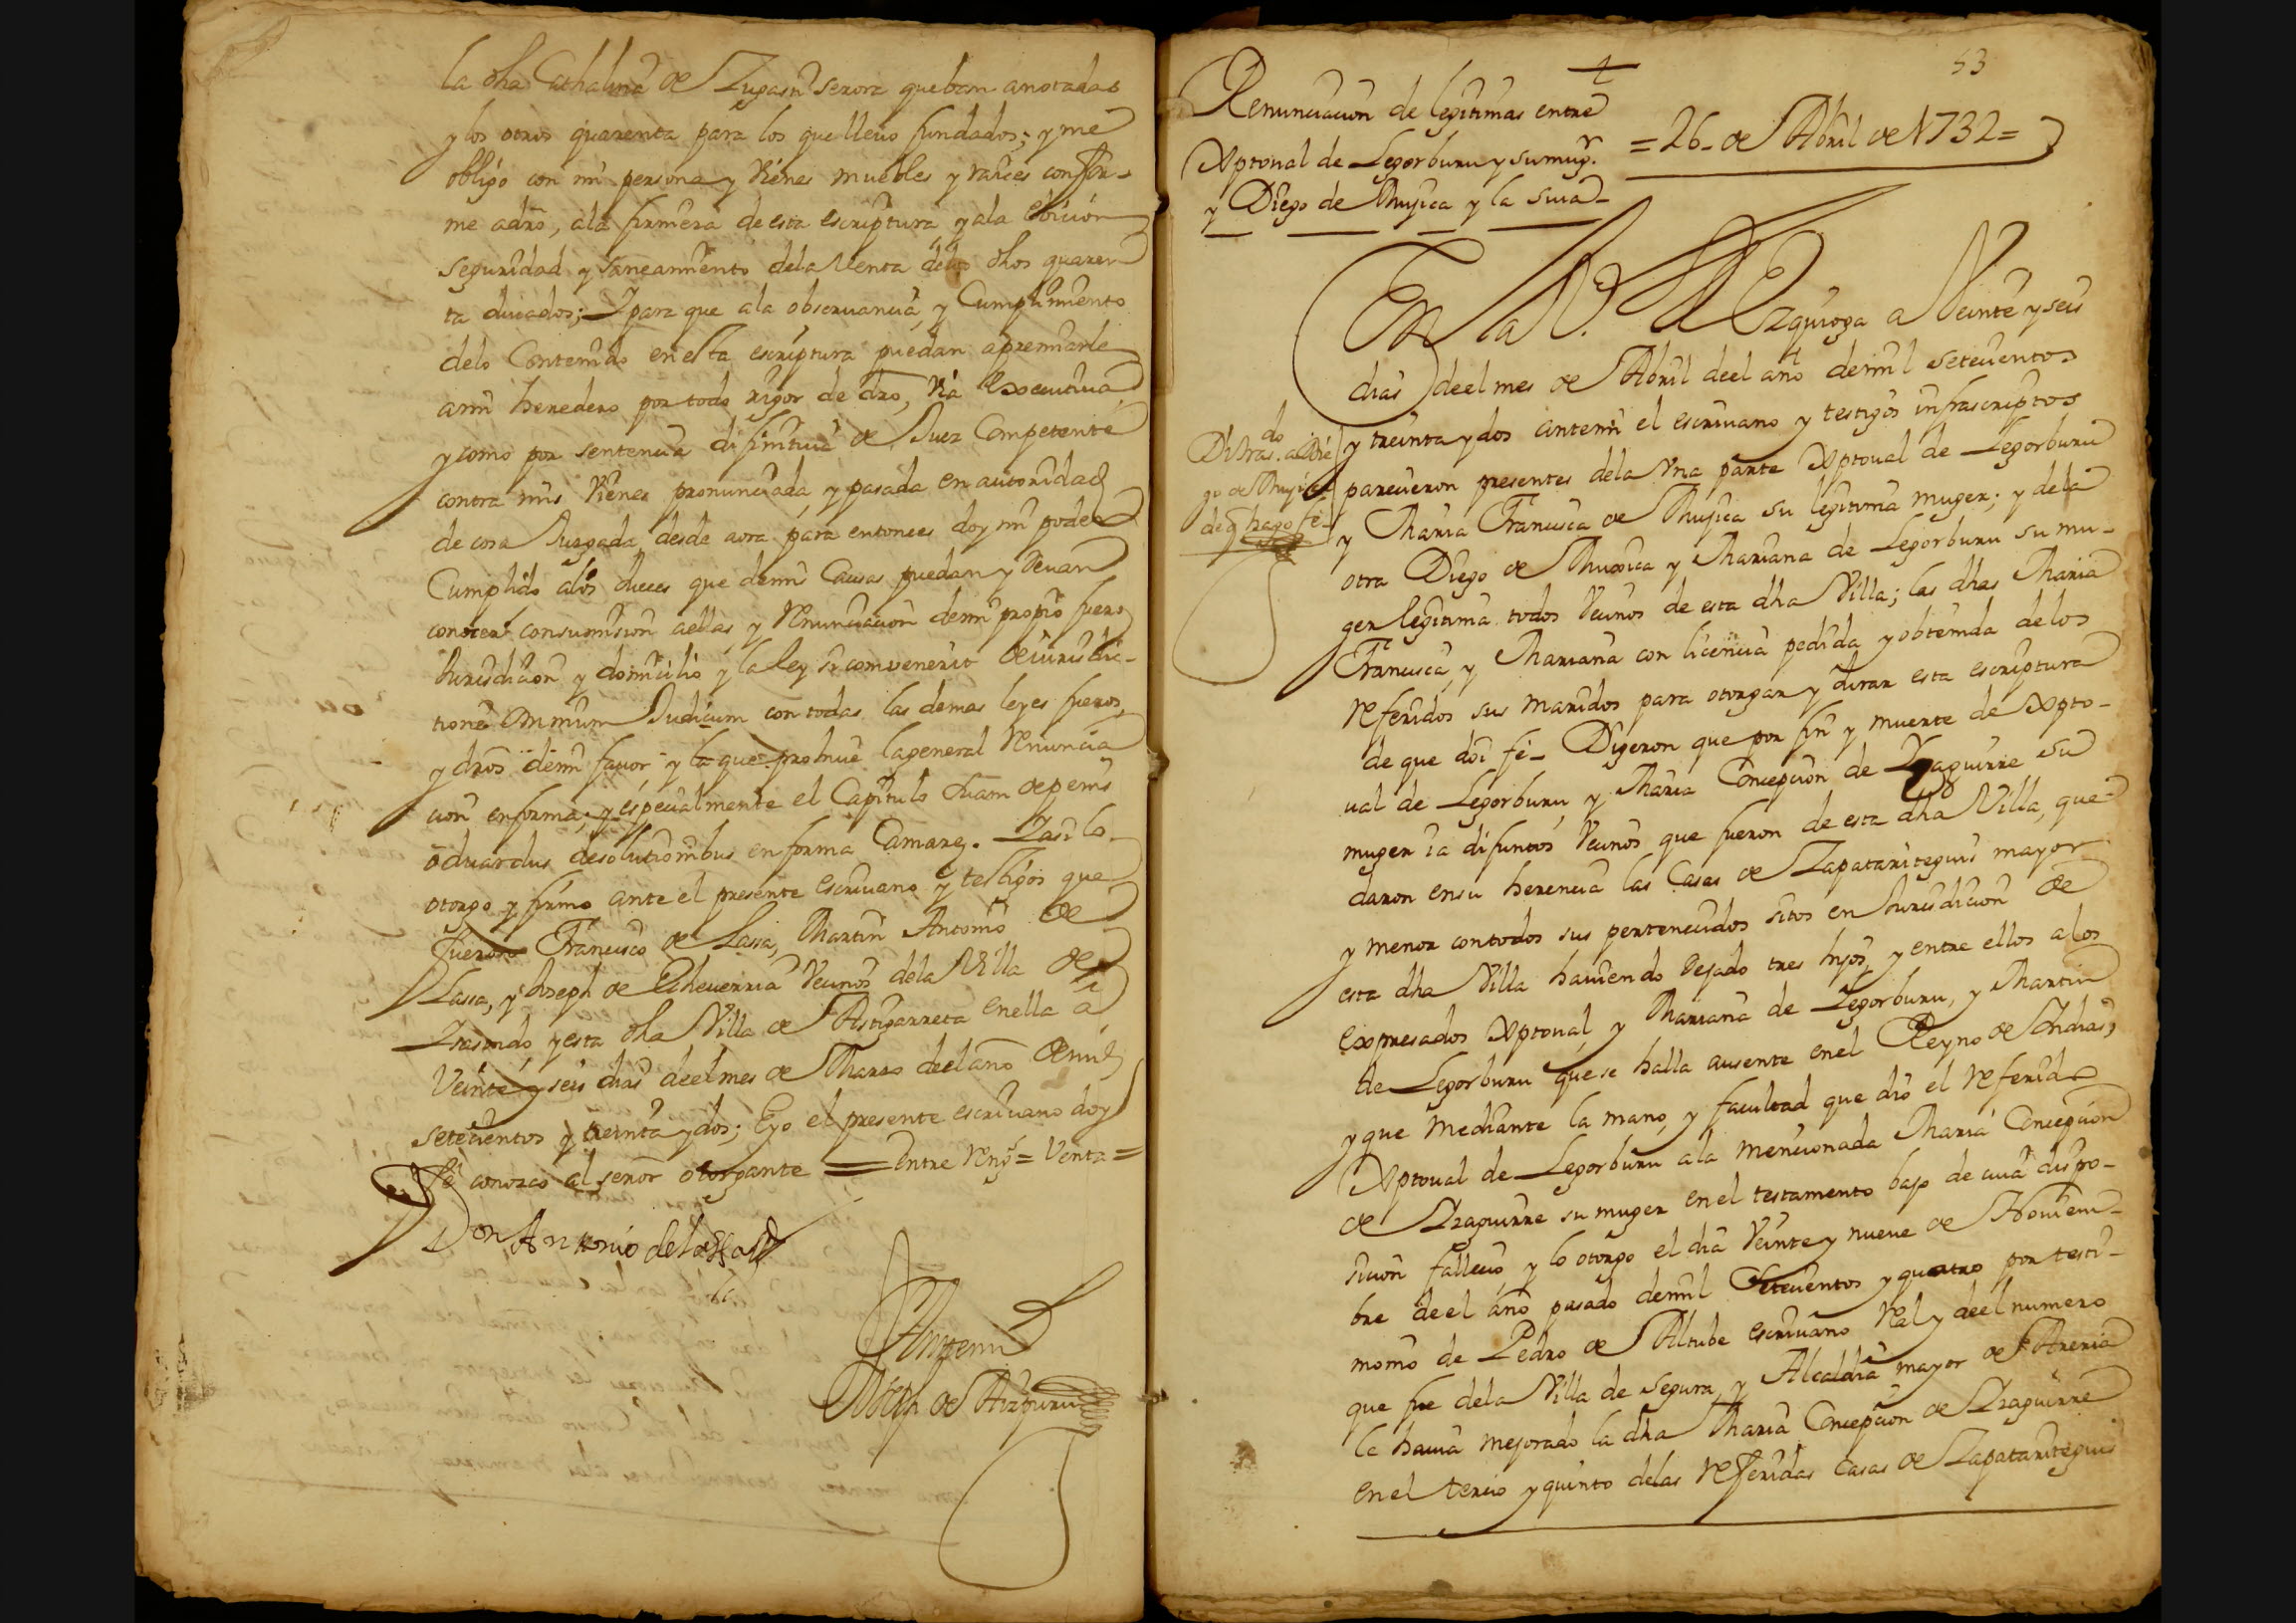 la dha Cathalina de Zugasti Señora queban anotadas
y los otros quarenta para los que lleuo fundados; y me
obligo con mi persona y Vienes muebles y raices confor-
me a dro, ala firmeza de esta escriptura y ala Ebicion
seguridad y saneamiento dela Venta delos dhos quaren
ta ducados; Y para que ala obseruancia y Cumplimiento
delo Contenido en esta escriptura puedan apremiarle
ami heredero por todo rigor de dro, via Executiua
y como por sentencia difinitiua de Juez Competente
contra mis Vienes pronunciada y pasada en autoridad
de cosa Juzgada desde aora para entonces doy mi poder
Cumplido alos Jueces que demis Causas puedan y deuan
conocer consumision aellas y Renunciacion demi propio fuero
Jurisdicion y domicilio y la ley sicomvenerit de iurisdic-
tione Omnium Judicum con todas las demas leyes fueros
y dros demi fauor y la que prohiue lageneral Renuncia
cion enforma; y especialmente el Capitulo duam de penis
oduardus desolutionibus enforma Camare. Y asi lo
otorgo y firmo ante el presente escriuano y testigos que
fueron Francisco de Lassa, Martin Antonio de
Lassa, y Joseph de Echeuerria Vecinos dela Villa de
Ydiazabal y esta dha Villa de Astigarreta en ella a
Veinte y seis dias deel mes de Marzo deel año de mil
setecientos y treinta y dos; Eyo el presente escriuano doy
fe conozco al señor otorgante = entre Reng.s = Venta =
Don Antonio de
Antemi
Joseph de Aizpuru
53
Renunciacion de legitimas entre
Xptoual de Legorburu y su mug.r
y Diego de Mujica y la suia
= 26 - de Abril de 1732 =
En la V.a de Ezquioga a Veinte y seis
dias deel mes de Abril deel año demil setecientos
y treinta y dos antemi el escriuano y testigos infrascriptos
parecieron presentes dela Vna parte Xptoual de Legorburu
y Maria Francisca de Mujica su legitima muger; y dela
otra Diego de Muxica y Mariana de Legorburu su mu-
ger legitima todos Vecinos de esta dha Villa; las dhas Maria
Francisca, y Mariana con licencia pedida y obtenida delos
Referidos sus maridos para otorgar y Jurar esta escriptura
de que doi fe- Digeron que por fin y muerte de Xpto-
ual de Legorburu, y Maria Concepcion de Yraguirre su
muger ia difuntos Vecinos que fueron de esta dha Villa, que-
daron ensu herencia las Casas de Zapatariteguis mayor
y menor contodos sus pertenecidos sitos en Jurisdicion de
esta dha Villa hauiendo dejado tres hijos, y entre ellos a los
expresados Xptoual, y Mariana de Legorburu, y Martin
de Legorburu que se halla ausente enel Reyno de Indias;
y que mediante la mano, y facultad que dio el Referido
Xptoual de Legorburu ala mencionada Maria Concepcion
de Yraguirre su muger en el testamento bajo de cuia dispo-
sicion fallecio, y lo otorgo el dia Veinte y nueue de Nouiem-
bre deel año pasado demil Setecientos y quatro por testi-
monio de Pedro de Altube escriuano Real y deel numero
que fue dela Villa de Segura, y Alcaldia mayor de Areria
la hauia mejorado la dha Maria Concepcion de Yraguirre
en el tercio y quinto delas Referidas Casas de Zapatariteguis
Di tras.do a Die
go de Mujica
de q hago fe